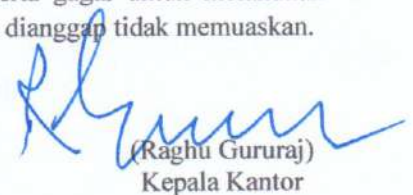 dianggap tidak memuaskan.
(Raghu Gururaj)
Kepala Kantor